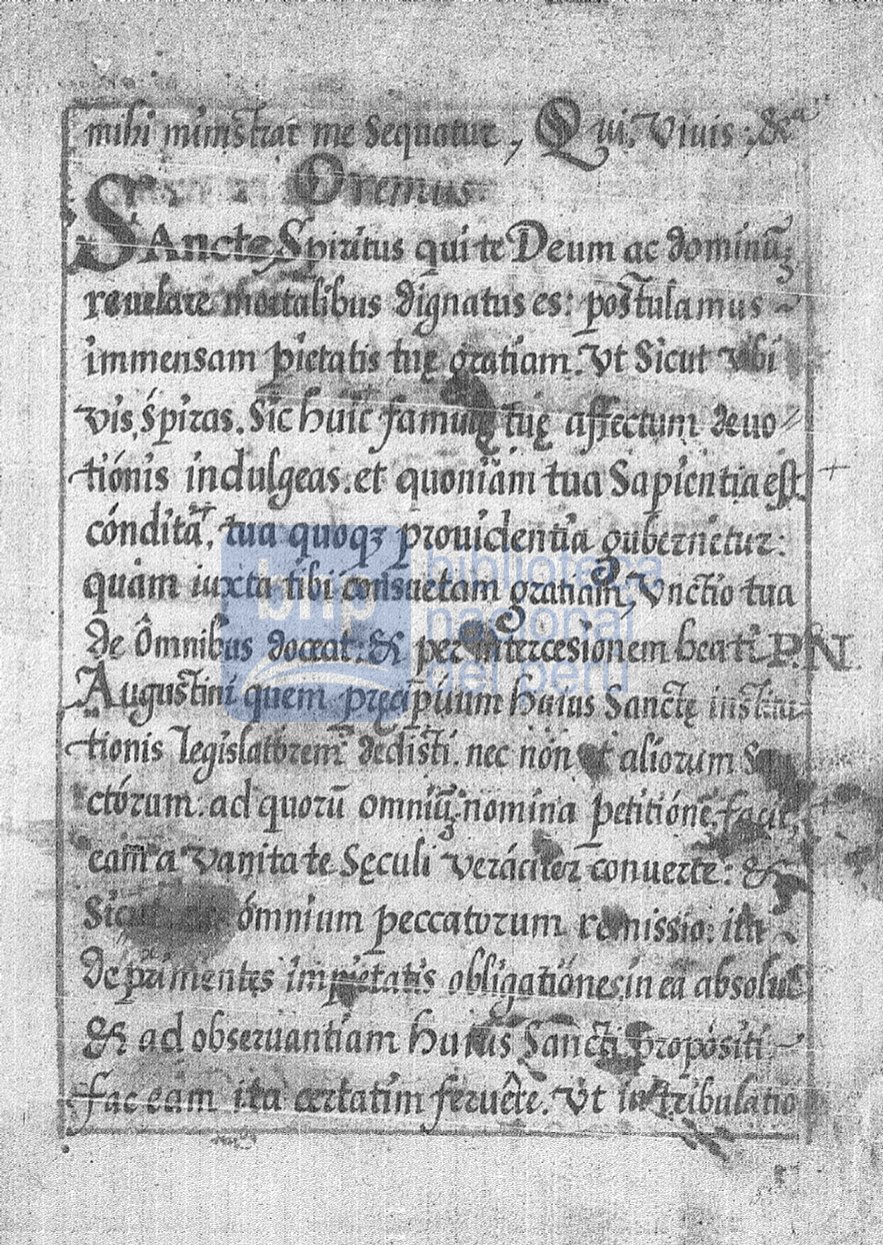 mihi ministrat me Sequatur, Qui. Viuis; &a
Oremus
SAncte Spiritus qui te Deum ac dominũ;
reuelare mortalibus dignatus es: postulamus ~
immensam pietatis tuę gratiam. Vt Sicut Vbi
vis, śpiras. Sic huic famulę tuę affectum deuo=
tiónis indulgeas. et quoniãm tua Sapientia est +
cóndita, tua quoqʒ prouidentia gubernetur:
quám iuxta tibi consuetam gratiam, Vnctio tua
de Ômnibus doceat: & per intercesionem beati P.N.
Augustini quem pręcipuum huius Sanctę institu=
tionis legislatorem dedisti. nec nón et aliorum San
ctórum. ad quorũ omniũ; nomina petitiónẽ facit,
eam a Vanitate Sęculi Veráciter conuerte: &
Sicut es ómnium peccatorum remissio: ita ~
deprimentes impietatis obligatiónes, in ea absolue
& ad obseruantiam huius Sancti propósiti ~
fac eám ita certatim feruêre. Vt in tribulatio
bnp
biblioteca
nacional
del perú